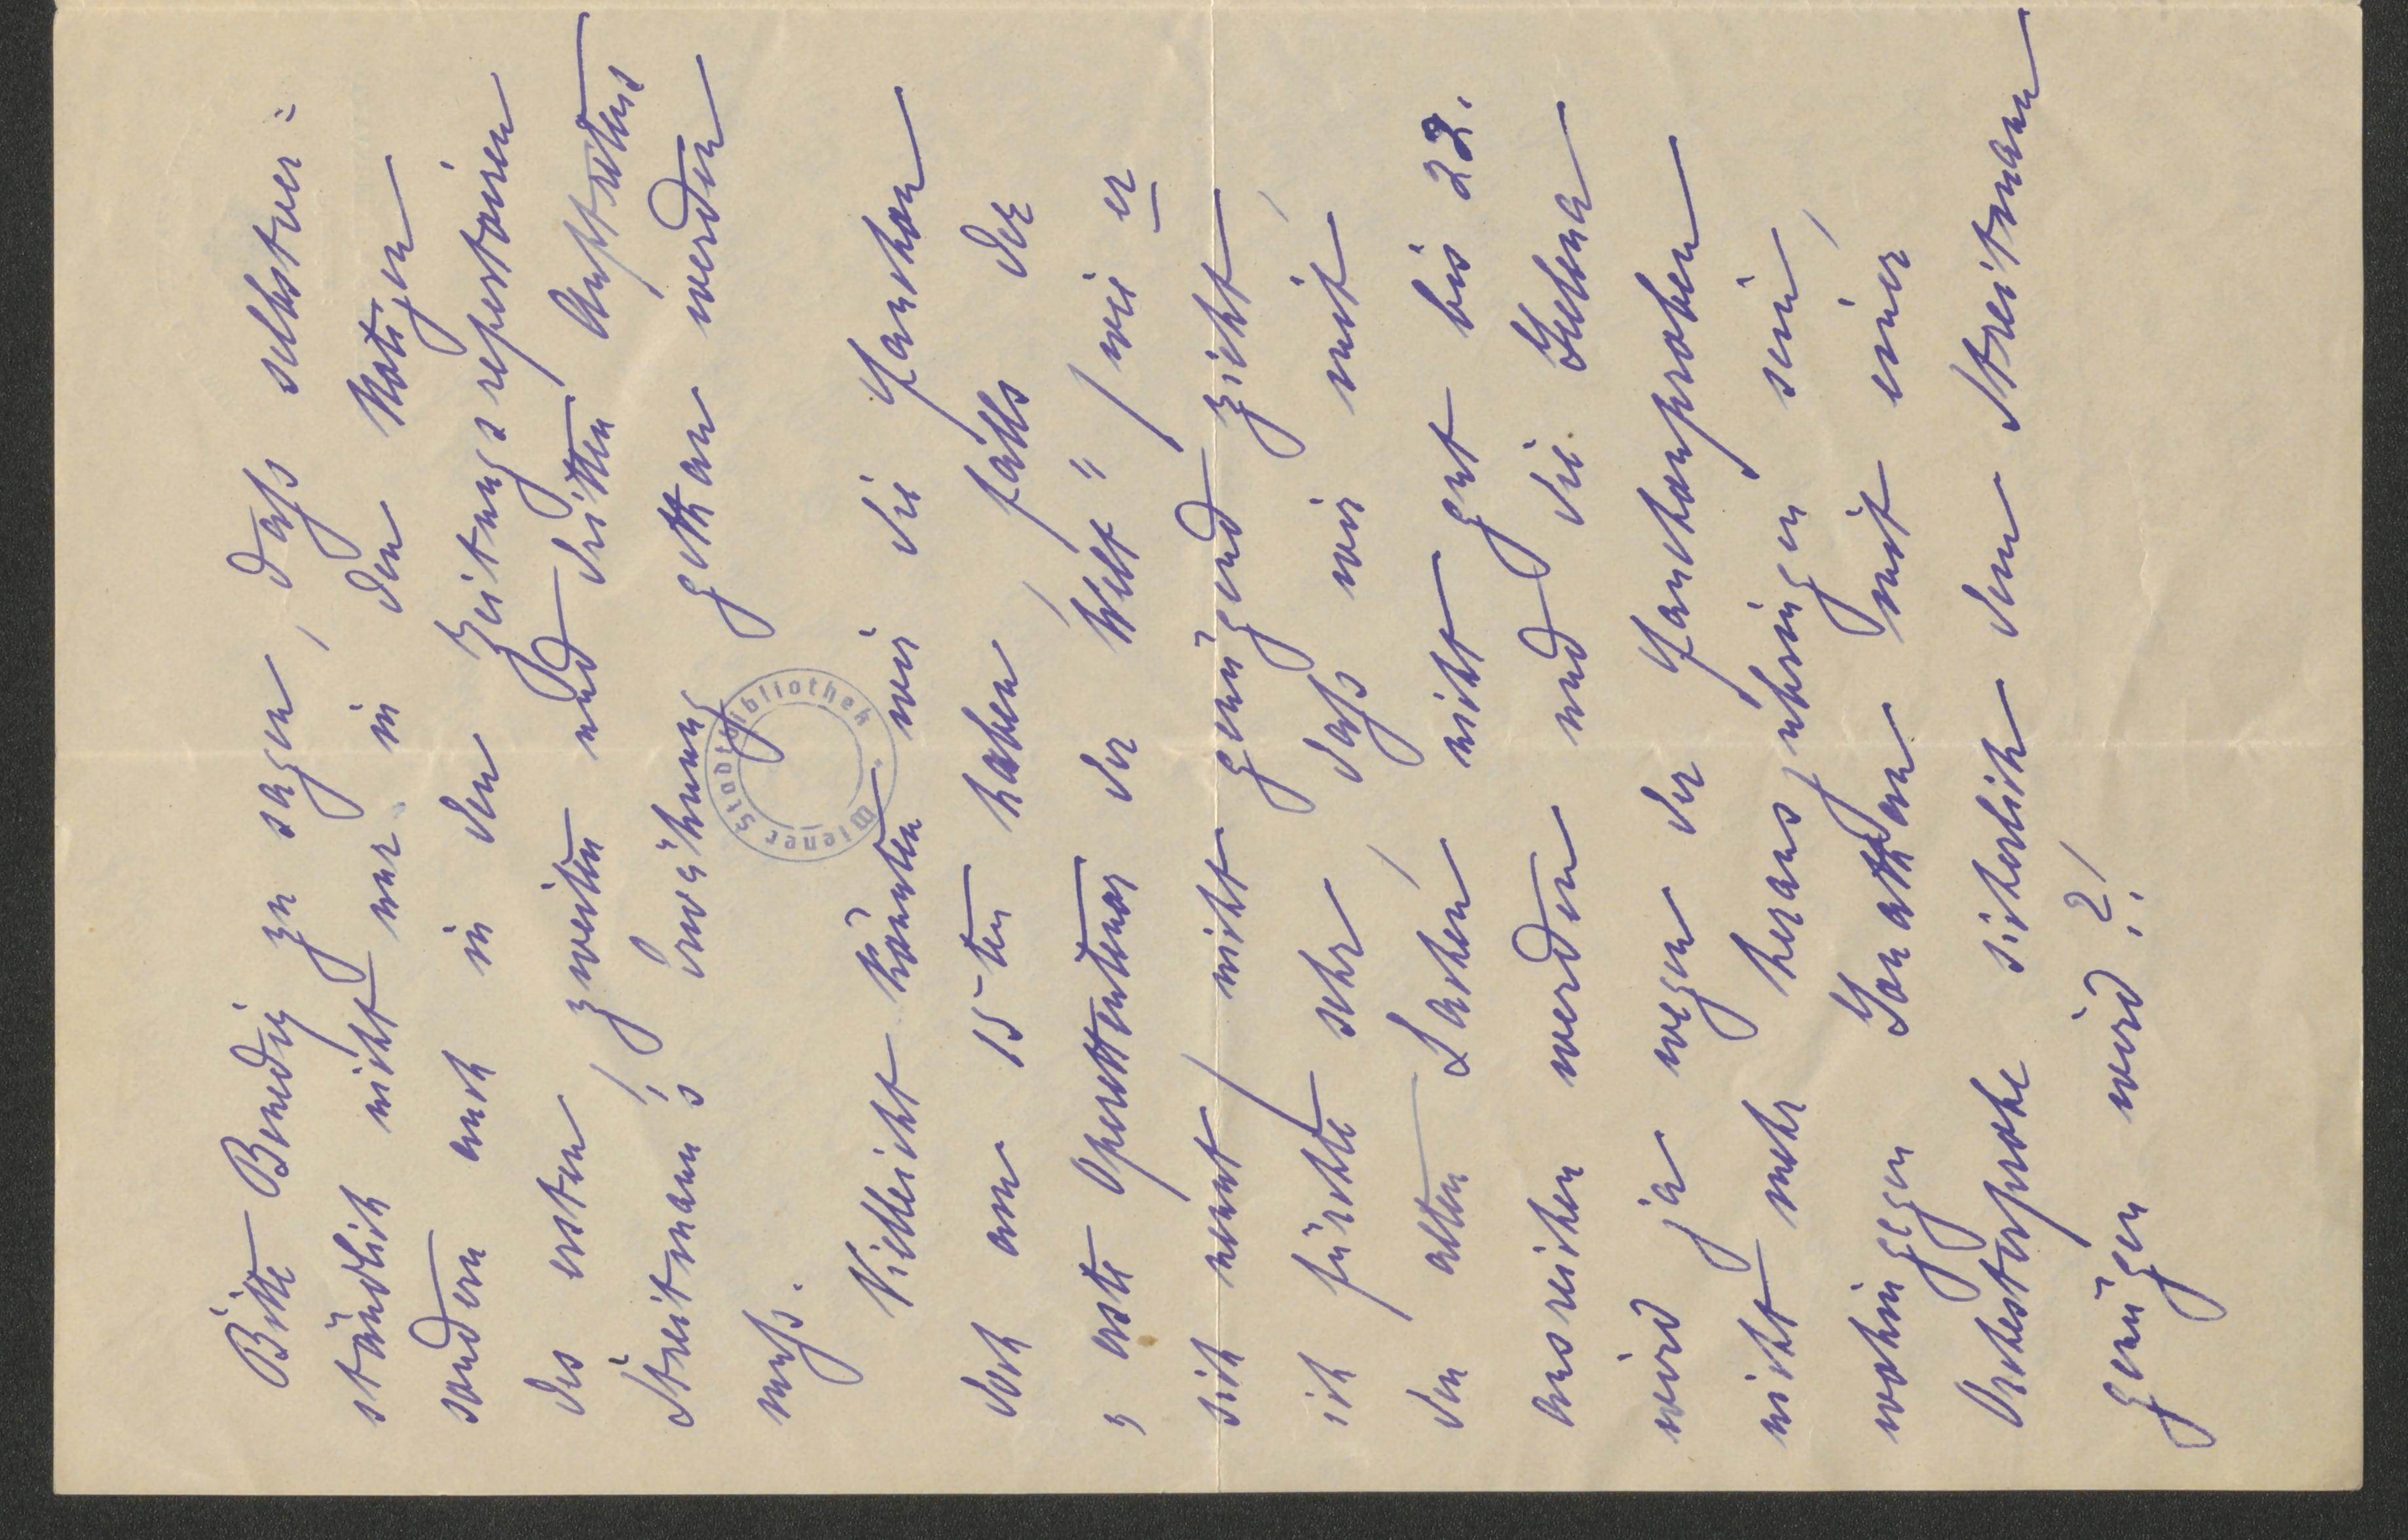 Bitte Benedix zu sagen, dass selbstver=
ständlich nicht nur in den Notizen
sondern auch in den Zeitungsrepertoiren
des ersten, zweiten und dritten Auftretens
Streitmann's Erwähnung gethan werden
muss.
Vielleicht könnten wir die Fanchon
doch am 15-ten haben, falls der
„erste Operettentenor der Welt" (wie er
sich nennt) nicht genügend zieht,
ich fürchte sehr, dass wir mit
den alten Sachen nicht gut bis 22.
ausreichen werden und die Helena
wird ja wegen der Fanchonproben
nicht mehr herauszubringen sein,
wohingegen Jonathan mit einer
Orchesterprobe sicherlich dem Streitmann
genügen wird?!
Wiener Stadtbibliothek